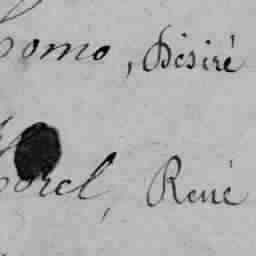 Como, Désiré
Morel, René